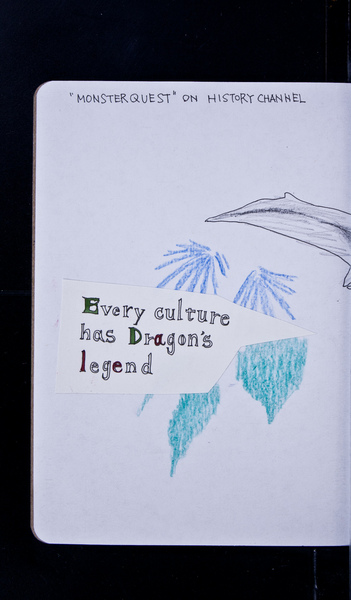 "MONSTERQUEST" ON HISTORY CHANNEL
Every culture
has Dragon's
legend